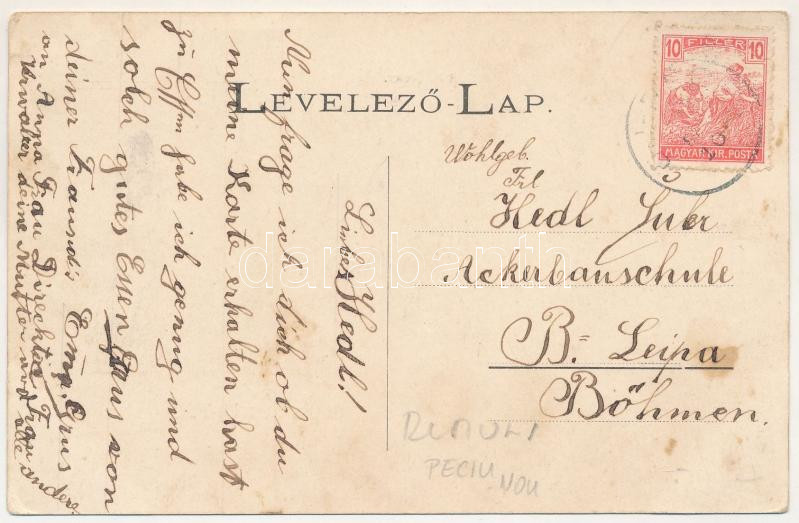 LEVELEZŐ-LAP.
10 FILLER 10
MAGYAR KIR. POSTA
Wohlgeb.
Frl
Hedl
Ackerbauschule
B= Leipa
Böhmen.
Liebe Hedl!
Nun frage ich dich ob du
meine Karte erhalten hast
zu Essen habe ich genug und
solch gutes Essen Grus von
deiner Freundi Ema. Grus
an Anna Frau Direchter Frau
Verwalter deine Mutter und alle andere.
PECIU
NOU
darabanth